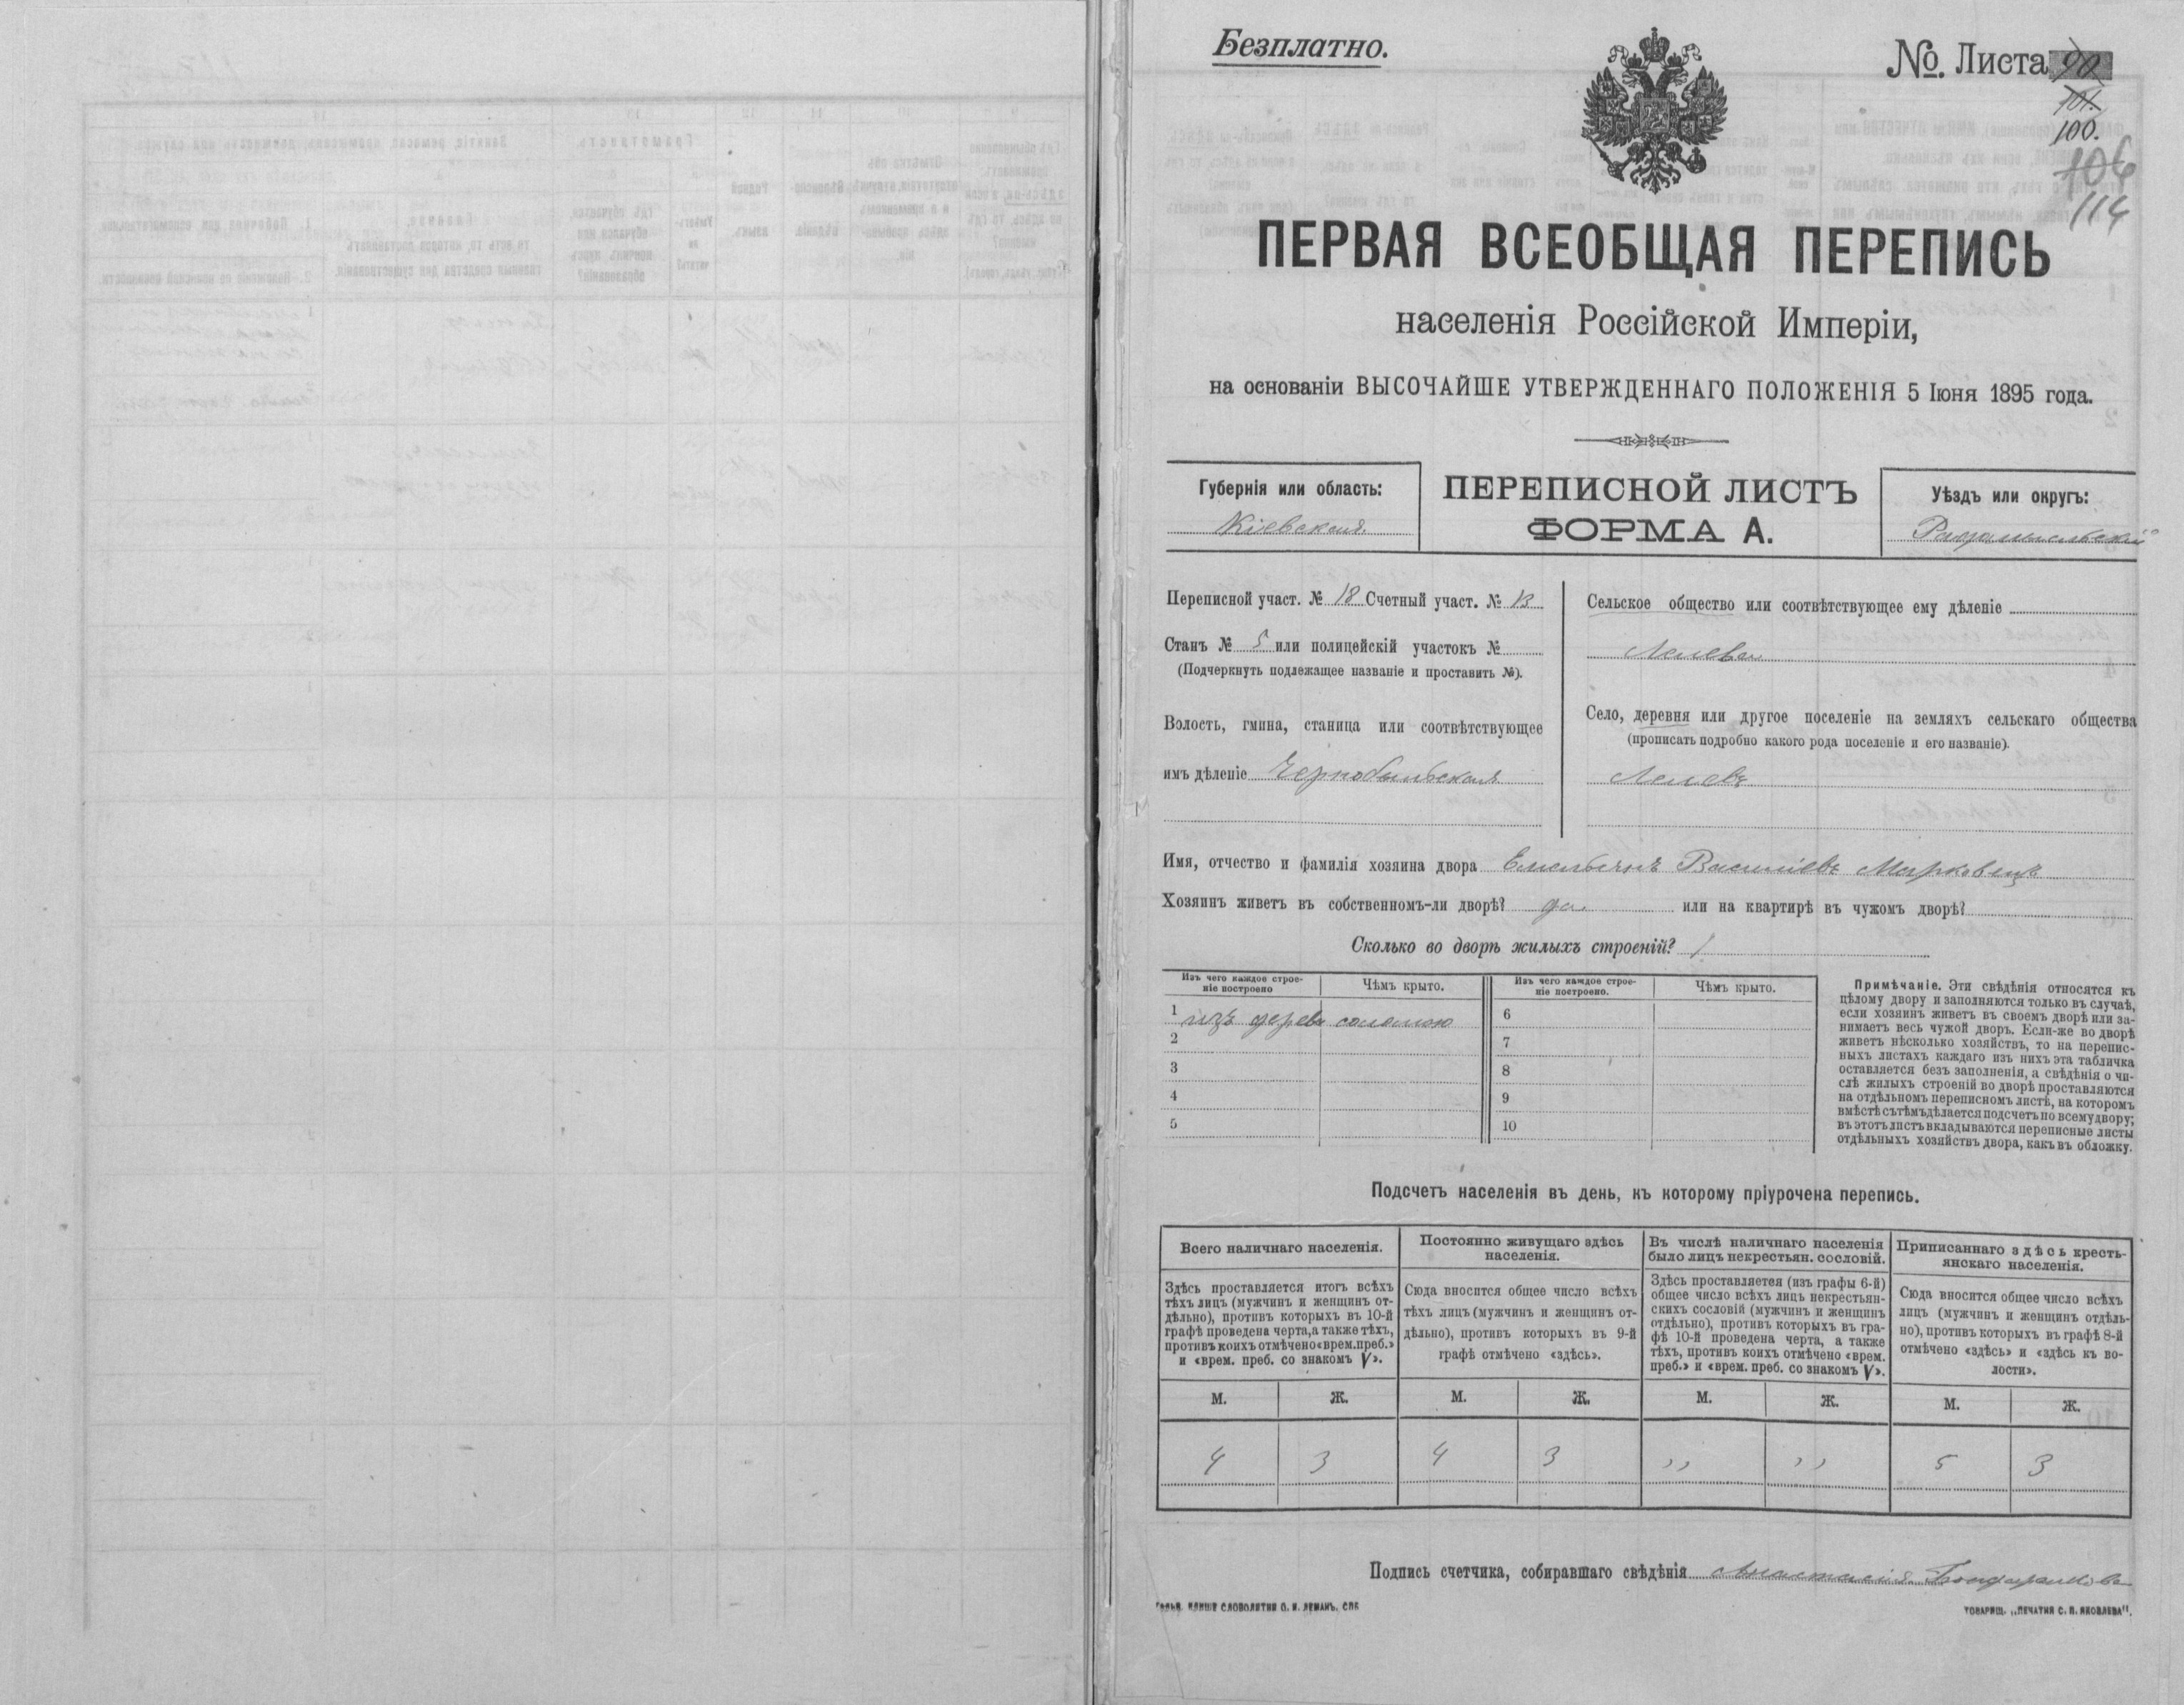 Безплатно.
№. Листа 90
101.
100.
106
114
ПЕРВАЯ ВСЕОБЩАЯ ПЕРЕПИСЬ
населенія Россійской Имперіи,
на основаніи ВЫСОЧАЙШЕ УТВЕРЖДЕННАГО ПОЛОЖЕНІЯ 5 Іюня 1895 года.
Губернія или область:
Кіевская
ПЕРЕПИСНОЙ ЛИСТЪ
ФОРМА А.
Уѣздъ или округъ:
Радомысльскій
Переписной участ. № 18 Счетный участ. № 13
Станъ № 5 или полицейскій участокъ №
(Подчеркнуть подлежащее названіе и проставить №).
Волость, гмина, станица или соотвѣтствующее
имъ дѣленіе Чернобыльская
Сельское общество или соотвѣтствующее ему дѣленіе
Село, деревня или другое поселеніе на земляхъ сельскаго общества
(прописать подробно какого рода поселеніе и его названіе).
Лелевъ
Имя, отчество и фамилія хозяина двора Емельянъ Василіевъ Марковецъ
Хозяинъ живетъ въ собственномъ-ли дворѣ? да или на квартирѣ въ чужомъ дворѣ?
Сколько во дворѣ жилыхъ строеній? 1
Изъ чего каждое строе-
ніе построено
Чѣмъ крыто.
1 изъ дерева соломою
2
3
4
5
Изъ чего каждое строе-
ніе построено.
Чѣмъ крыто.
6
7
8
9
10
Примѣчаніе. Эти свѣдѣнія относятся къ
цѣлому двору и заполняются только въ случаѣ,
если хозяинъ живетъ въ своемъ дворѣ или за-
нимаетъ весь чужой дворъ. Если-же во дворѣ
живетъ нѣсколько хозяйствъ, то на перепис-
ныхъ листахъ каждаго изъ нихъ эта табличка
оставляется безъ заполненія, а свѣдѣнія о чи-
слѣ жилыхъ строеній во дворѣ проставляются
на отдѣльномъ переписномъ листѣ, на которомъ
вмѣстѣ съ тѣмъ дѣлается подсчетъ по всему двору;
въ этотъ листъ вкладываются переписные листы
отдѣльныхъ хозяйствъ двора, какъ въ обложку.
Подсчетъ населенія въ день, къ которому пріурочена перепись.
Всего наличнаго населенія.
Здѣсь проставляется итогъ всѣхъ
тѣхъ лицъ (мужчинъ и женщинъ от-
дѣльно), противъ которыхъ въ 10-й
графѣ проведена черта, а также тѣхъ,
противъ коихъ отмѣчено «врем. преб.»
и «врем. преб. со знакомъ V».
М. Ж.
4 3
Постоянно живущаго здѣсь
населенія.
Сюда вносится общее число всѣхъ
тѣхъ лицъ (мужчинъ и женщинъ от-
дѣльно), противъ которыхъ въ 9-й
графѣ отмѣчено «здѣсь».
М. Ж.
4 3
Въ числѣ наличнаго населенія
было лицъ некрестьян. сословій.
Здѣсь проставляется (изъ графы 6-й)
общее число всѣхъ лицъ некрестьян-
скихъ сословій (мужчинъ и женщинъ
отдѣльно), противъ которыхъ въ гра-
фѣ 10-й проведена черта, а также
тѣхъ, противъ коихъ отмѣчено «врем.
преб.» и «врем. преб. со знакомъ V».
М. Ж.
,, ,,
Приписаннаго здѣсь кресть-
янскаго населенія.
Сюда вносится общее число всѣхъ
лицъ (мужчинъ и женщинъ отдѣль-
но), противъ которыхъ въ графѣ 8-й
отмѣчено «здѣсь» и «здѣсь къ во-
лости».
М. Ж.
5 3
Подпись счетчика, собиравшаго свѣдѣнія Анастасія
СЛОВОЛИТНИ О. И. ЛЕМАНЪ. СПБ
ТОВАРИЩ. „ПЕЧАТНЯ С. П. ЯКОВЛЕВА".